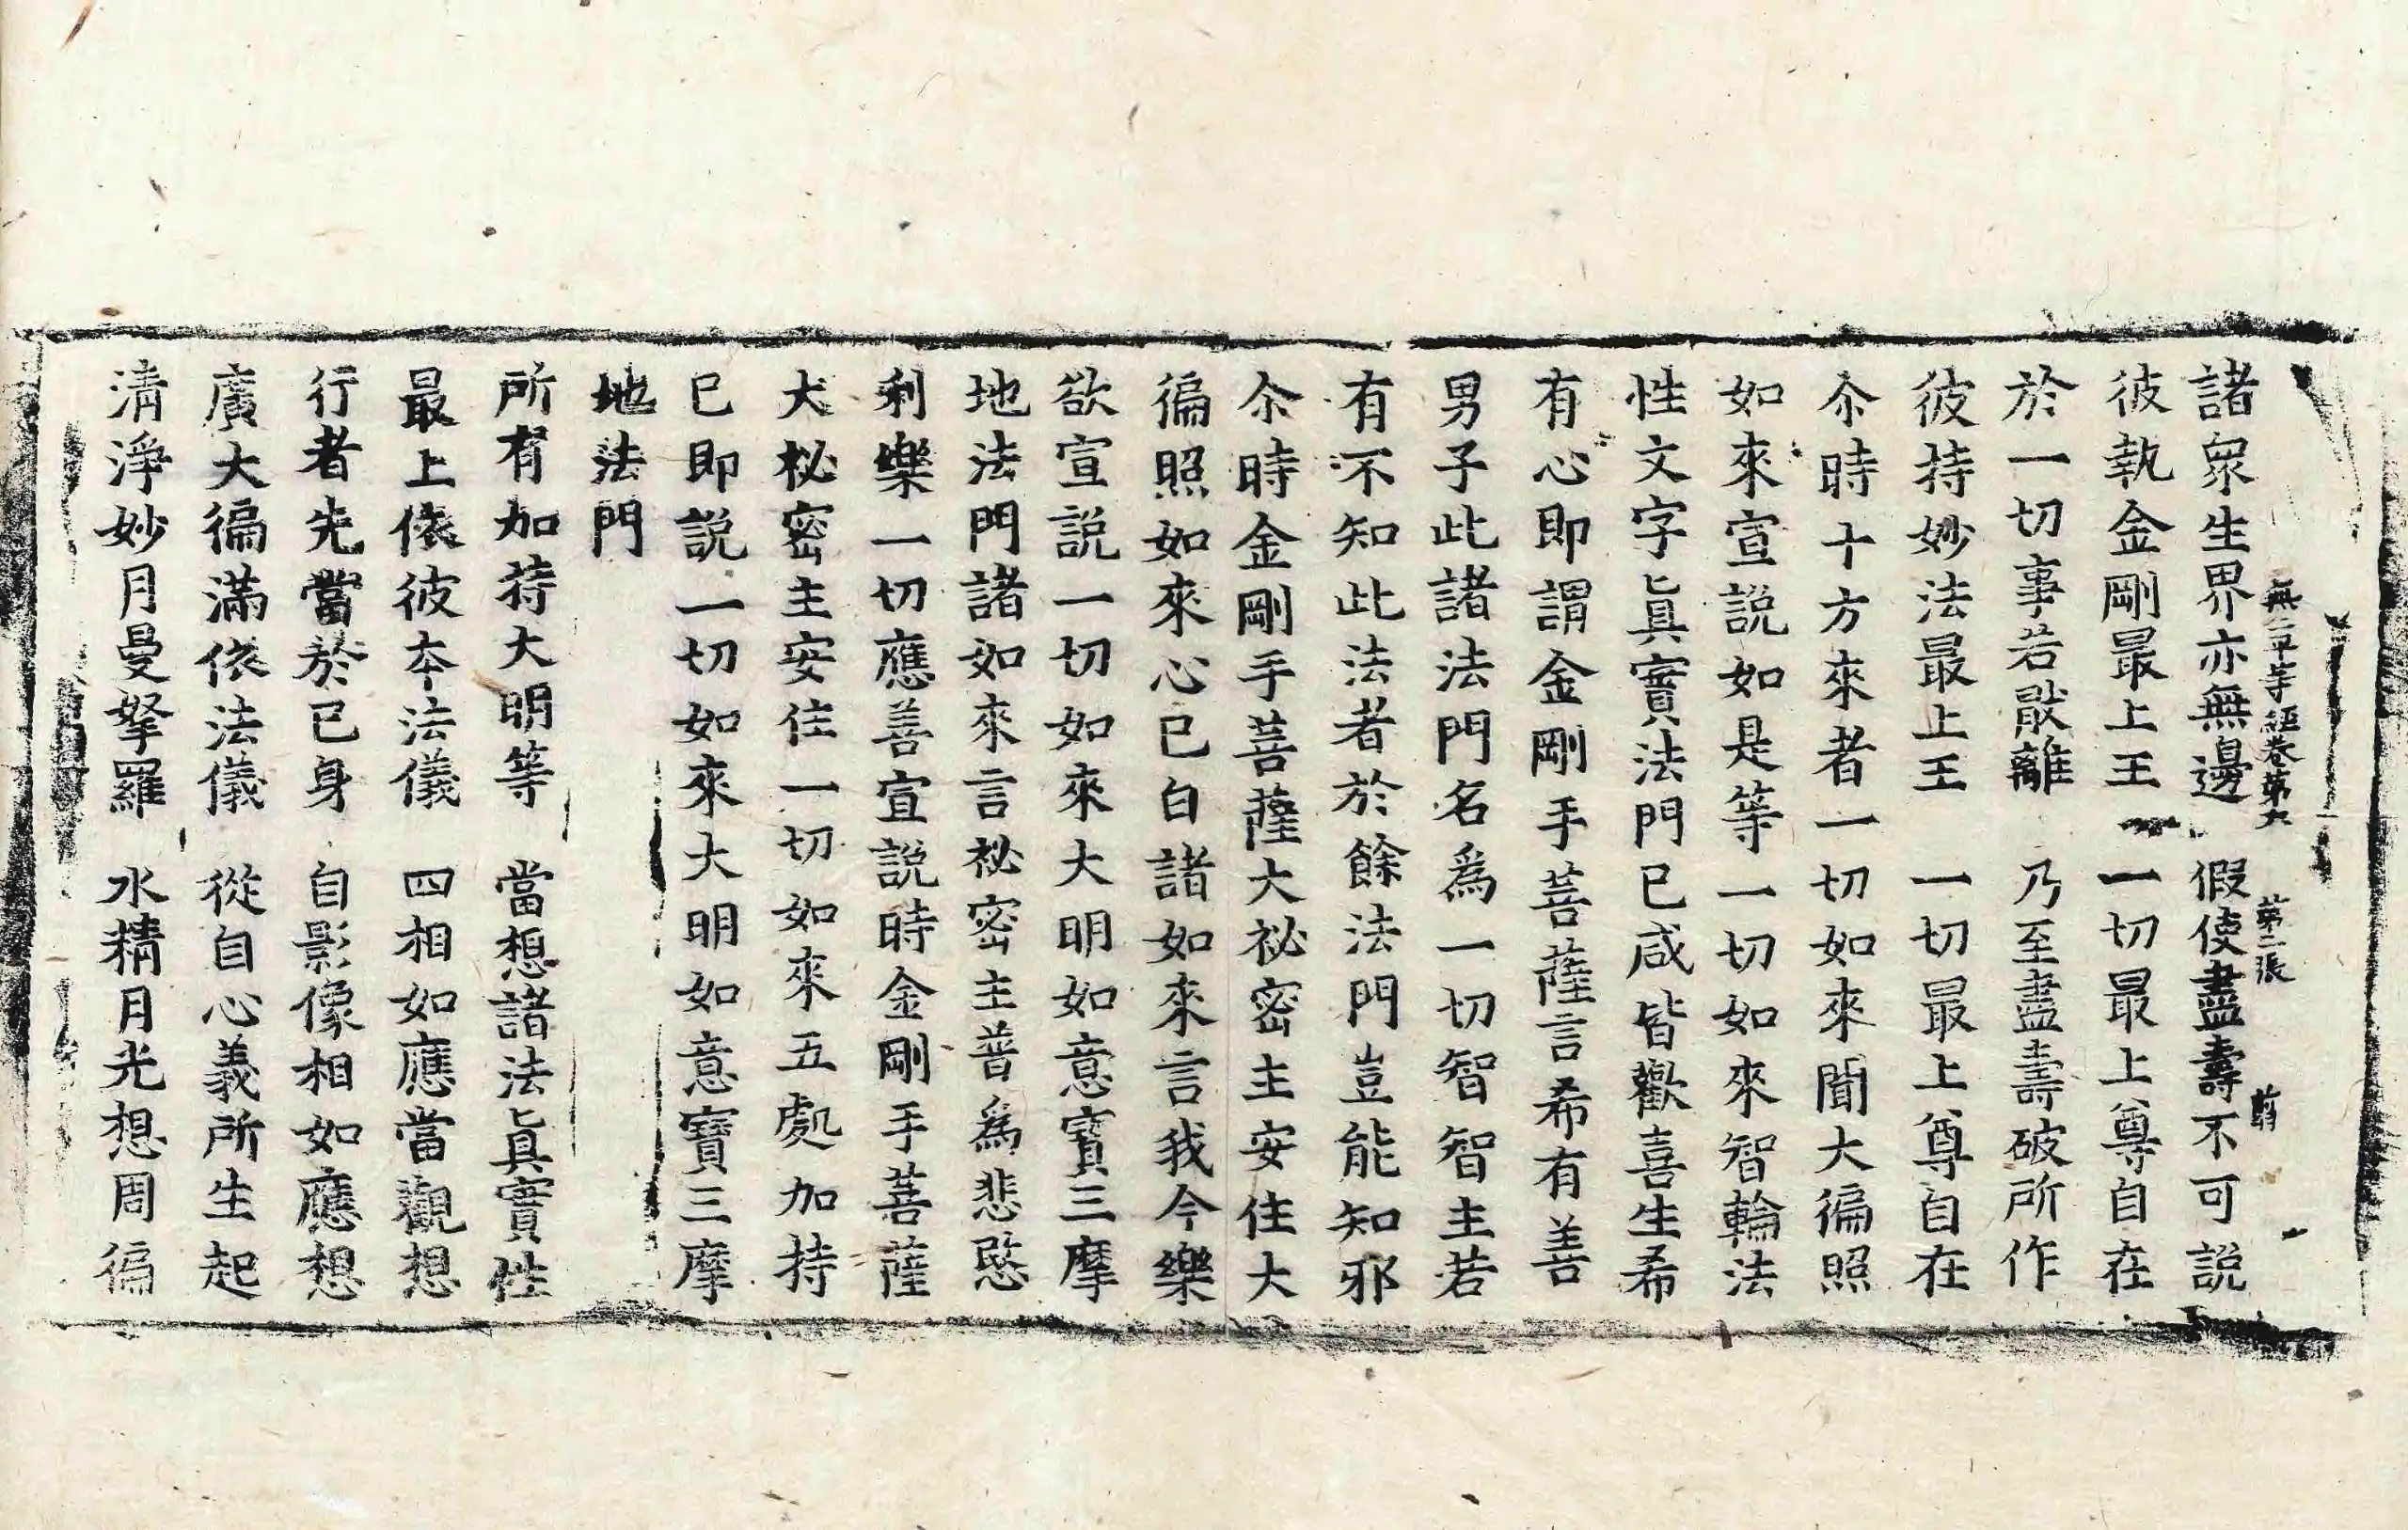 無二平等經卷第六　第二張　翦
諸衆生界亦無邊　假使盡壽不可說
彼執金剛最上王　一切最上尊自在
於一切事若散離　乃至盡壽破所作
彼持妙法最上王　一切最上尊自在
尒時十方來者一切如來聞大徧照
如來宣說如是等一切如來智輪法
性文字眞實法門已咸皆歡喜生希
有心即謂金剛手菩薩言希有善
男子此諸法門名爲一切智智主若
有不知此法者於餘法門豈能知邪
尒時金剛手菩薩大祕密主安住大
徧照如來心已白諸如來言我今樂
欲宣說一切如來大明如意寳三摩
地法門諸如來言祕密主普爲悲愍
利樂一切應善宣說時金剛手菩薩
大祕密主安住一切如來五處加持
已即說一切如來大明如意寳三摩
地法門
所有加持大明等　當想諸法眞實性
最上依彼本法儀　四相如應當觀想
行者先當於已身　自影像相如應想
廣大徧滿依法儀　從自心義所生起
清淨妙月曼拏羅　水精月光想周徧